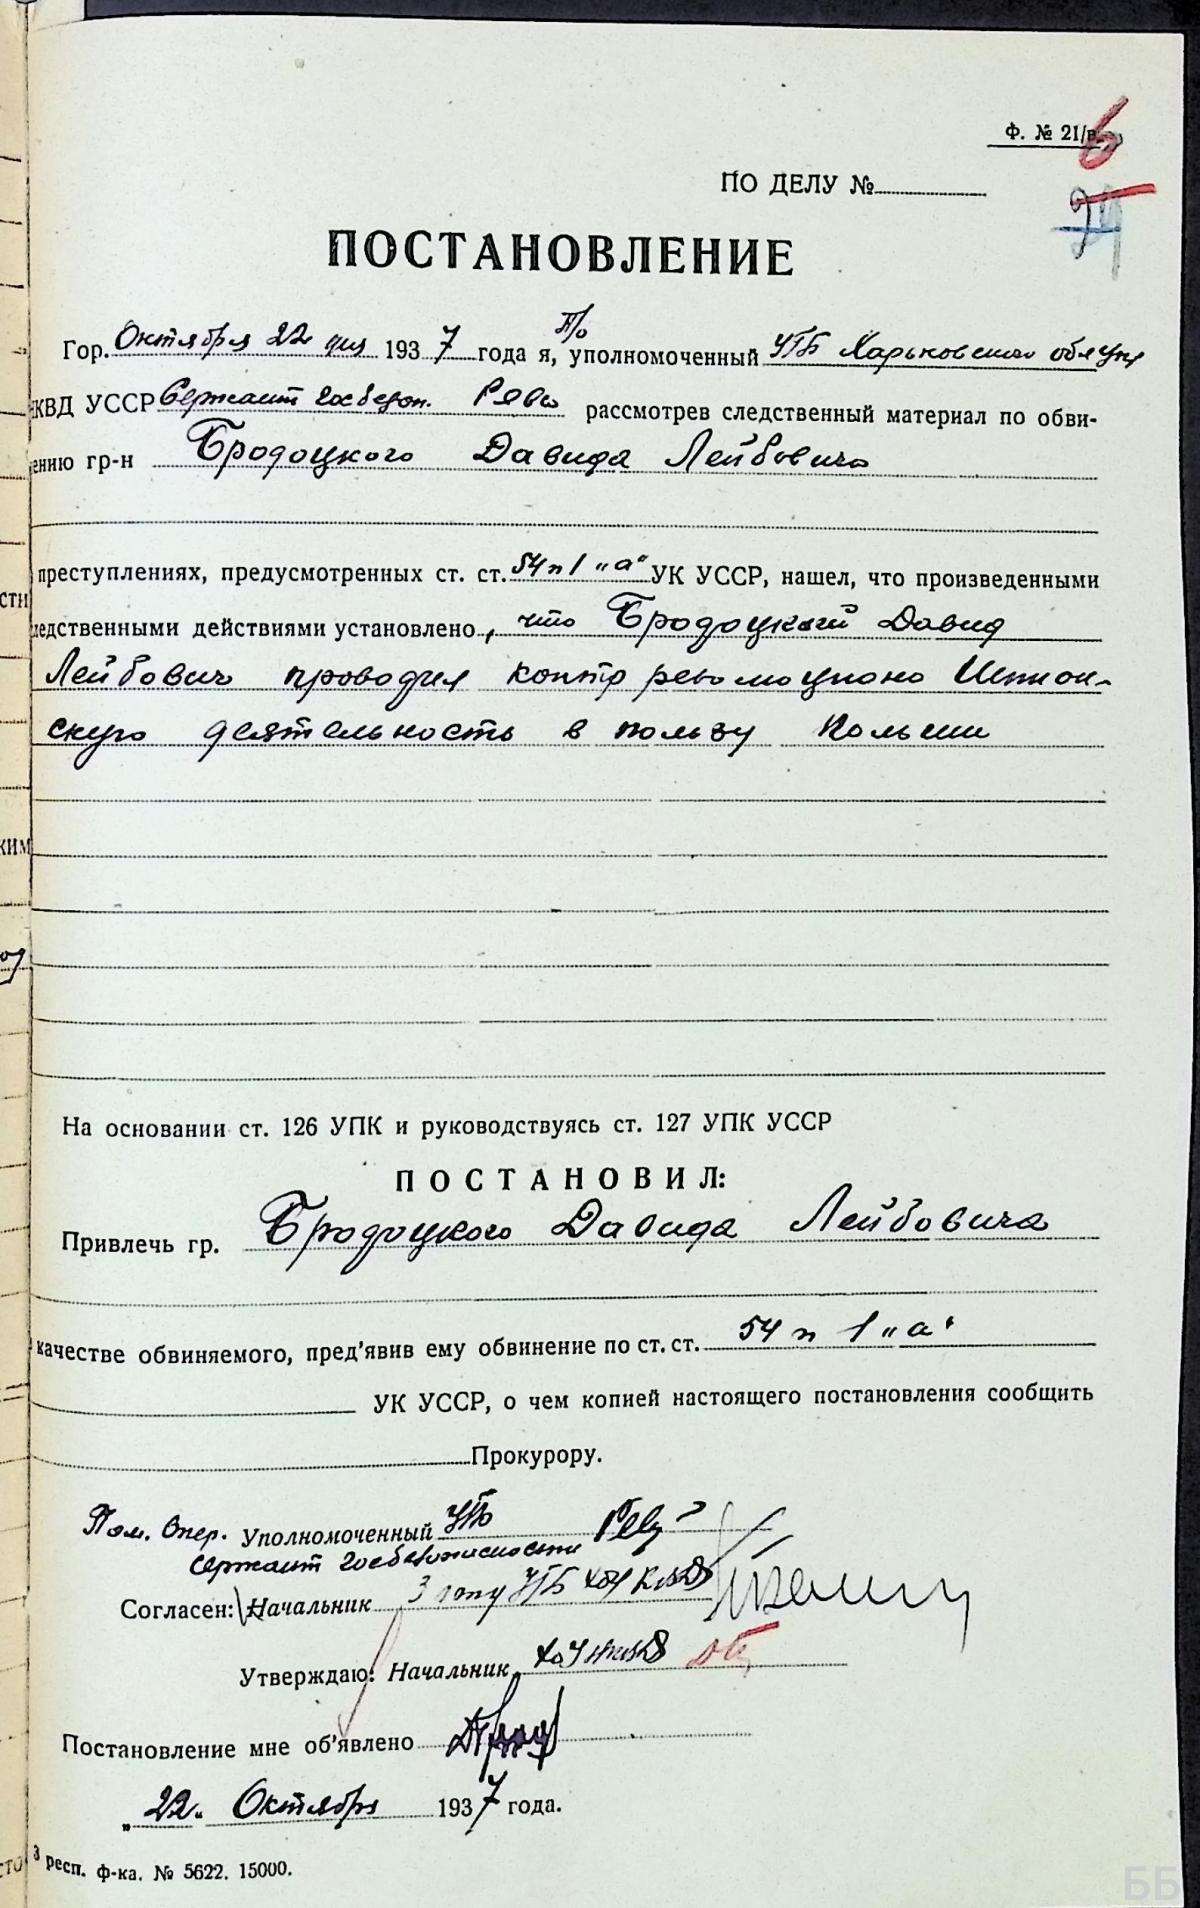 Ф. № 21/в
6
ПО ДЕЛУ №
ПОСТАНОВЛЕНИЕ
Гор. Октября 22 дня 1937 года я, п/о уполномоченный УГБ Харьковского обл упр
НКВД УССР Сержант госбезоп. рассмотрев следственный материал по обви-
ению гр-н Бродоцкого Давида Лейбовича
преступлениях, предусмотренных ст. ст. 54 п 1 „а" УК УССР, нашел, что произведенными
ледственными действиями установлено, что Бродоцкий Давид
Лейбович проводил контрреволюционо Шпион-
скую деятельность в пользу Польши
На основании ст. 126 УПК и руководствуясь ст. 127 УПК УССР
ПОСТАНОВИЛ:
Привлечь гр. Бродоцкого Давида Лейбовича
качестве обвиняемого, пред'явив ему обвинение по ст. ст. 54 п 1 „а"
УК УССР, о чем копией настоящего постановления сообщить
Прокурору.
Пом. Опер. Уполномоченный УГБ
Сержант Госбезопасности
Согласен: Начальник 3 УГБ ХОУ НКВД
Утверждаю: Начальник ХОУ НКВД
Постановление мне об'явлено
„22" Октября 1937 года.
3 респ. ф-ка. № 5622. 15000.
ББ